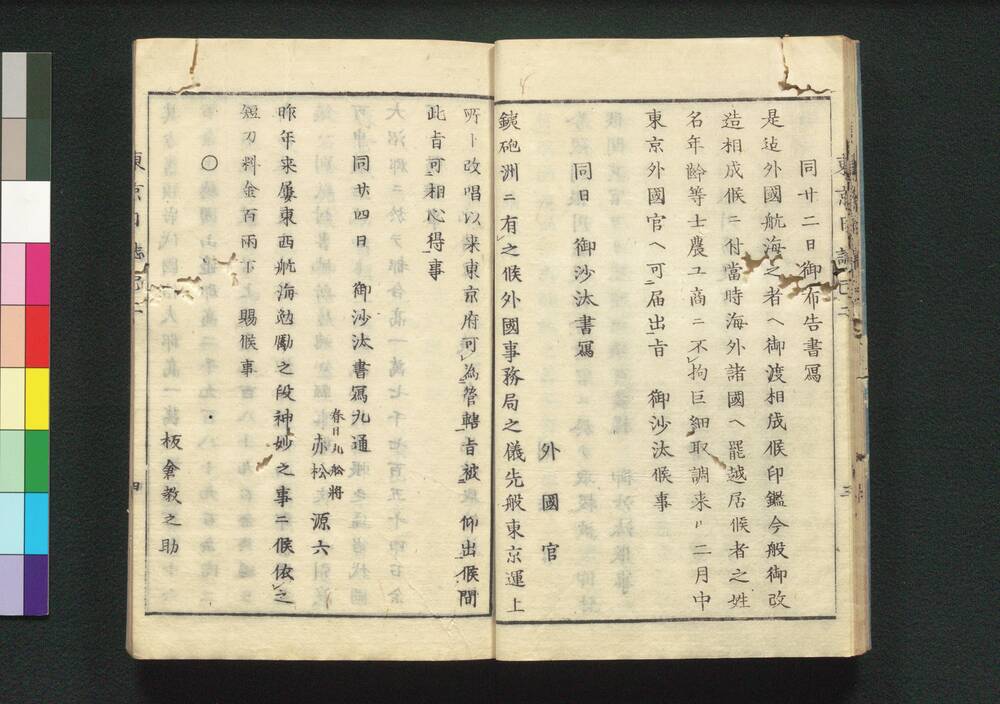 同廿二日御布告書寫
是迠外國航海之者ヘ御渡相成候印鑑今般御改
造相成候ニ付當時海外諸國ヘ罷越居候者之姓
名年齡等士農工商ニ不拘巨細取調来ル二月中
東京外國官ヘ可届出旨 御沙汰候事
同日御沙汰書寫
外國官
銕砲洲ニ有之候外國事務局之儀先般東京運上
所ト改唱以来東京府可為管轄旨被 仰出候間
此旨可相心得事
同廿四日御沙汰書寫九通
春日丸船将
赤松源六
昨年来屢東西航海勉勵之段神妙之事ニ候依之
短刀料金百兩下賜候事
○
板倉教之助
東京日誌
三
四